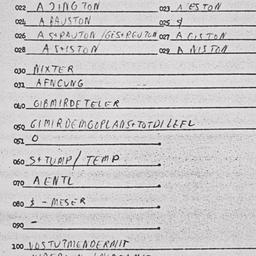 022 A JINGTON 023 A ESTON
024 A FAUSTON 025 4
026 A S+PAUTON /GES+PEUTON 027 A CISTON
028 A S+ISTON 029 A NISTON
030 NIXTER
031 AFNCUNG
040 GIBMIRDETELER
050 GIMIRDEMGOPLANS+TOTDILEFL
051 0
060 S+TUMP/TEMP
070 A ENTL
080 $ - MESER
090 -
100 VOSTU?MENDERMIT